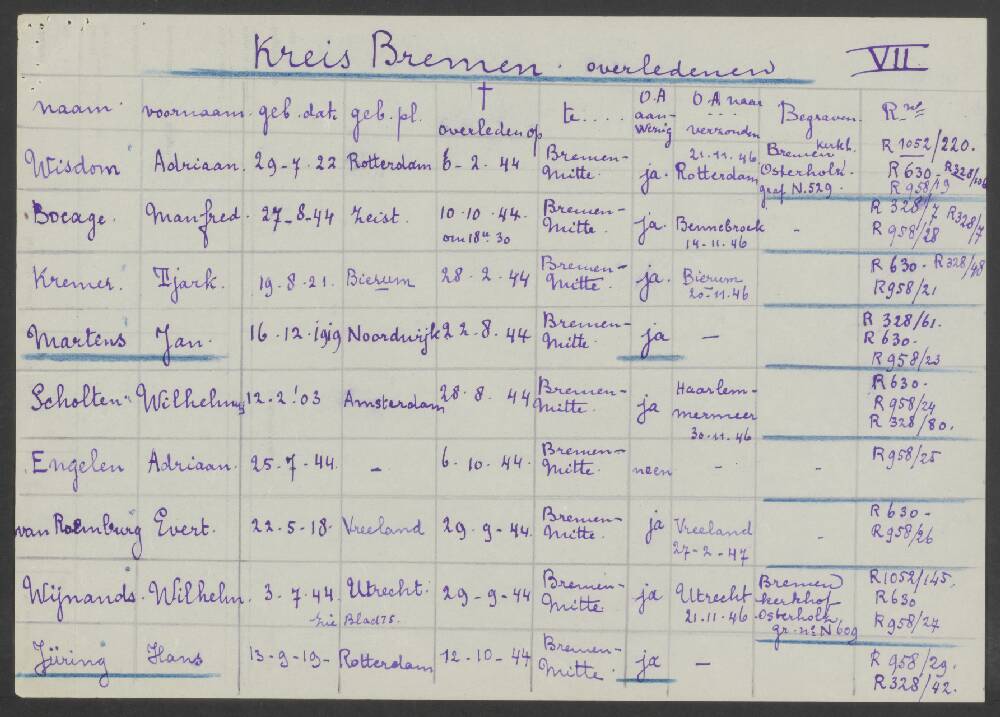 Kreis Bremen. overledenen VII
naam. voornaam. geb. dat. geb. pl. † overleden op te.... O.A aan- wezig O.A naar verzonden Begraven. R nos
Wisdom Adriaan. 29-7.22 Rotterdam 6-2.44 Bremen- Mitte. ja. 21.11.46 Rotterdam Bremen kerkh. Osterholz. graf N.529. R 1052/220. R 630- R958/19
Bocage. Manfred. 27-8-44 Zeist. 10.10.44. om 18 u. 30 Bremen- Mitte. ja. Bennebroek 14-11.46 - R 328/7 R328/7 R958/28
Kremer. Tjark. 19.8.21. Bierum 28.2.44 Bremen- Mitte. ja. Bierum 20-11.46 R 630. R 328/48 R958/21
Martens Jan. 16.12.1919 Noordwijk 22.8.44 Bremen- Mitte. ja - R 328/61. R 630. R958/23
Scholten Wilhelmus 12-2!03 Amsterdam 28.8.44 Bremen- Mitte. ja Haarlem- mermeer 30.11.46 R630. R958/24 R 328/80.
Engelen Adriaan. 25.7-44. - 6.10.44. Bremen- Mitte. neen - - R958/25
van Roemburg Evert. 22.5-18. Vreeland 29.9-44. Bremen- Mitte. ja Vreeland 27-2-47 - R 630- R958/26
Wijnands. Wilhelm. 3.7.44. zie Utrecht. Bladz 5. 29-9-44 Bremen- Mitte ja Utrecht 21.11.46 Bremen kerkhof Osterholz gr. no N 609 R1052/145. R630 R958/27
Jüring Hans 13-9-19- Rotterdam 12.10-44 Bremen- Mitte. ja - R 958/29. R328/42.